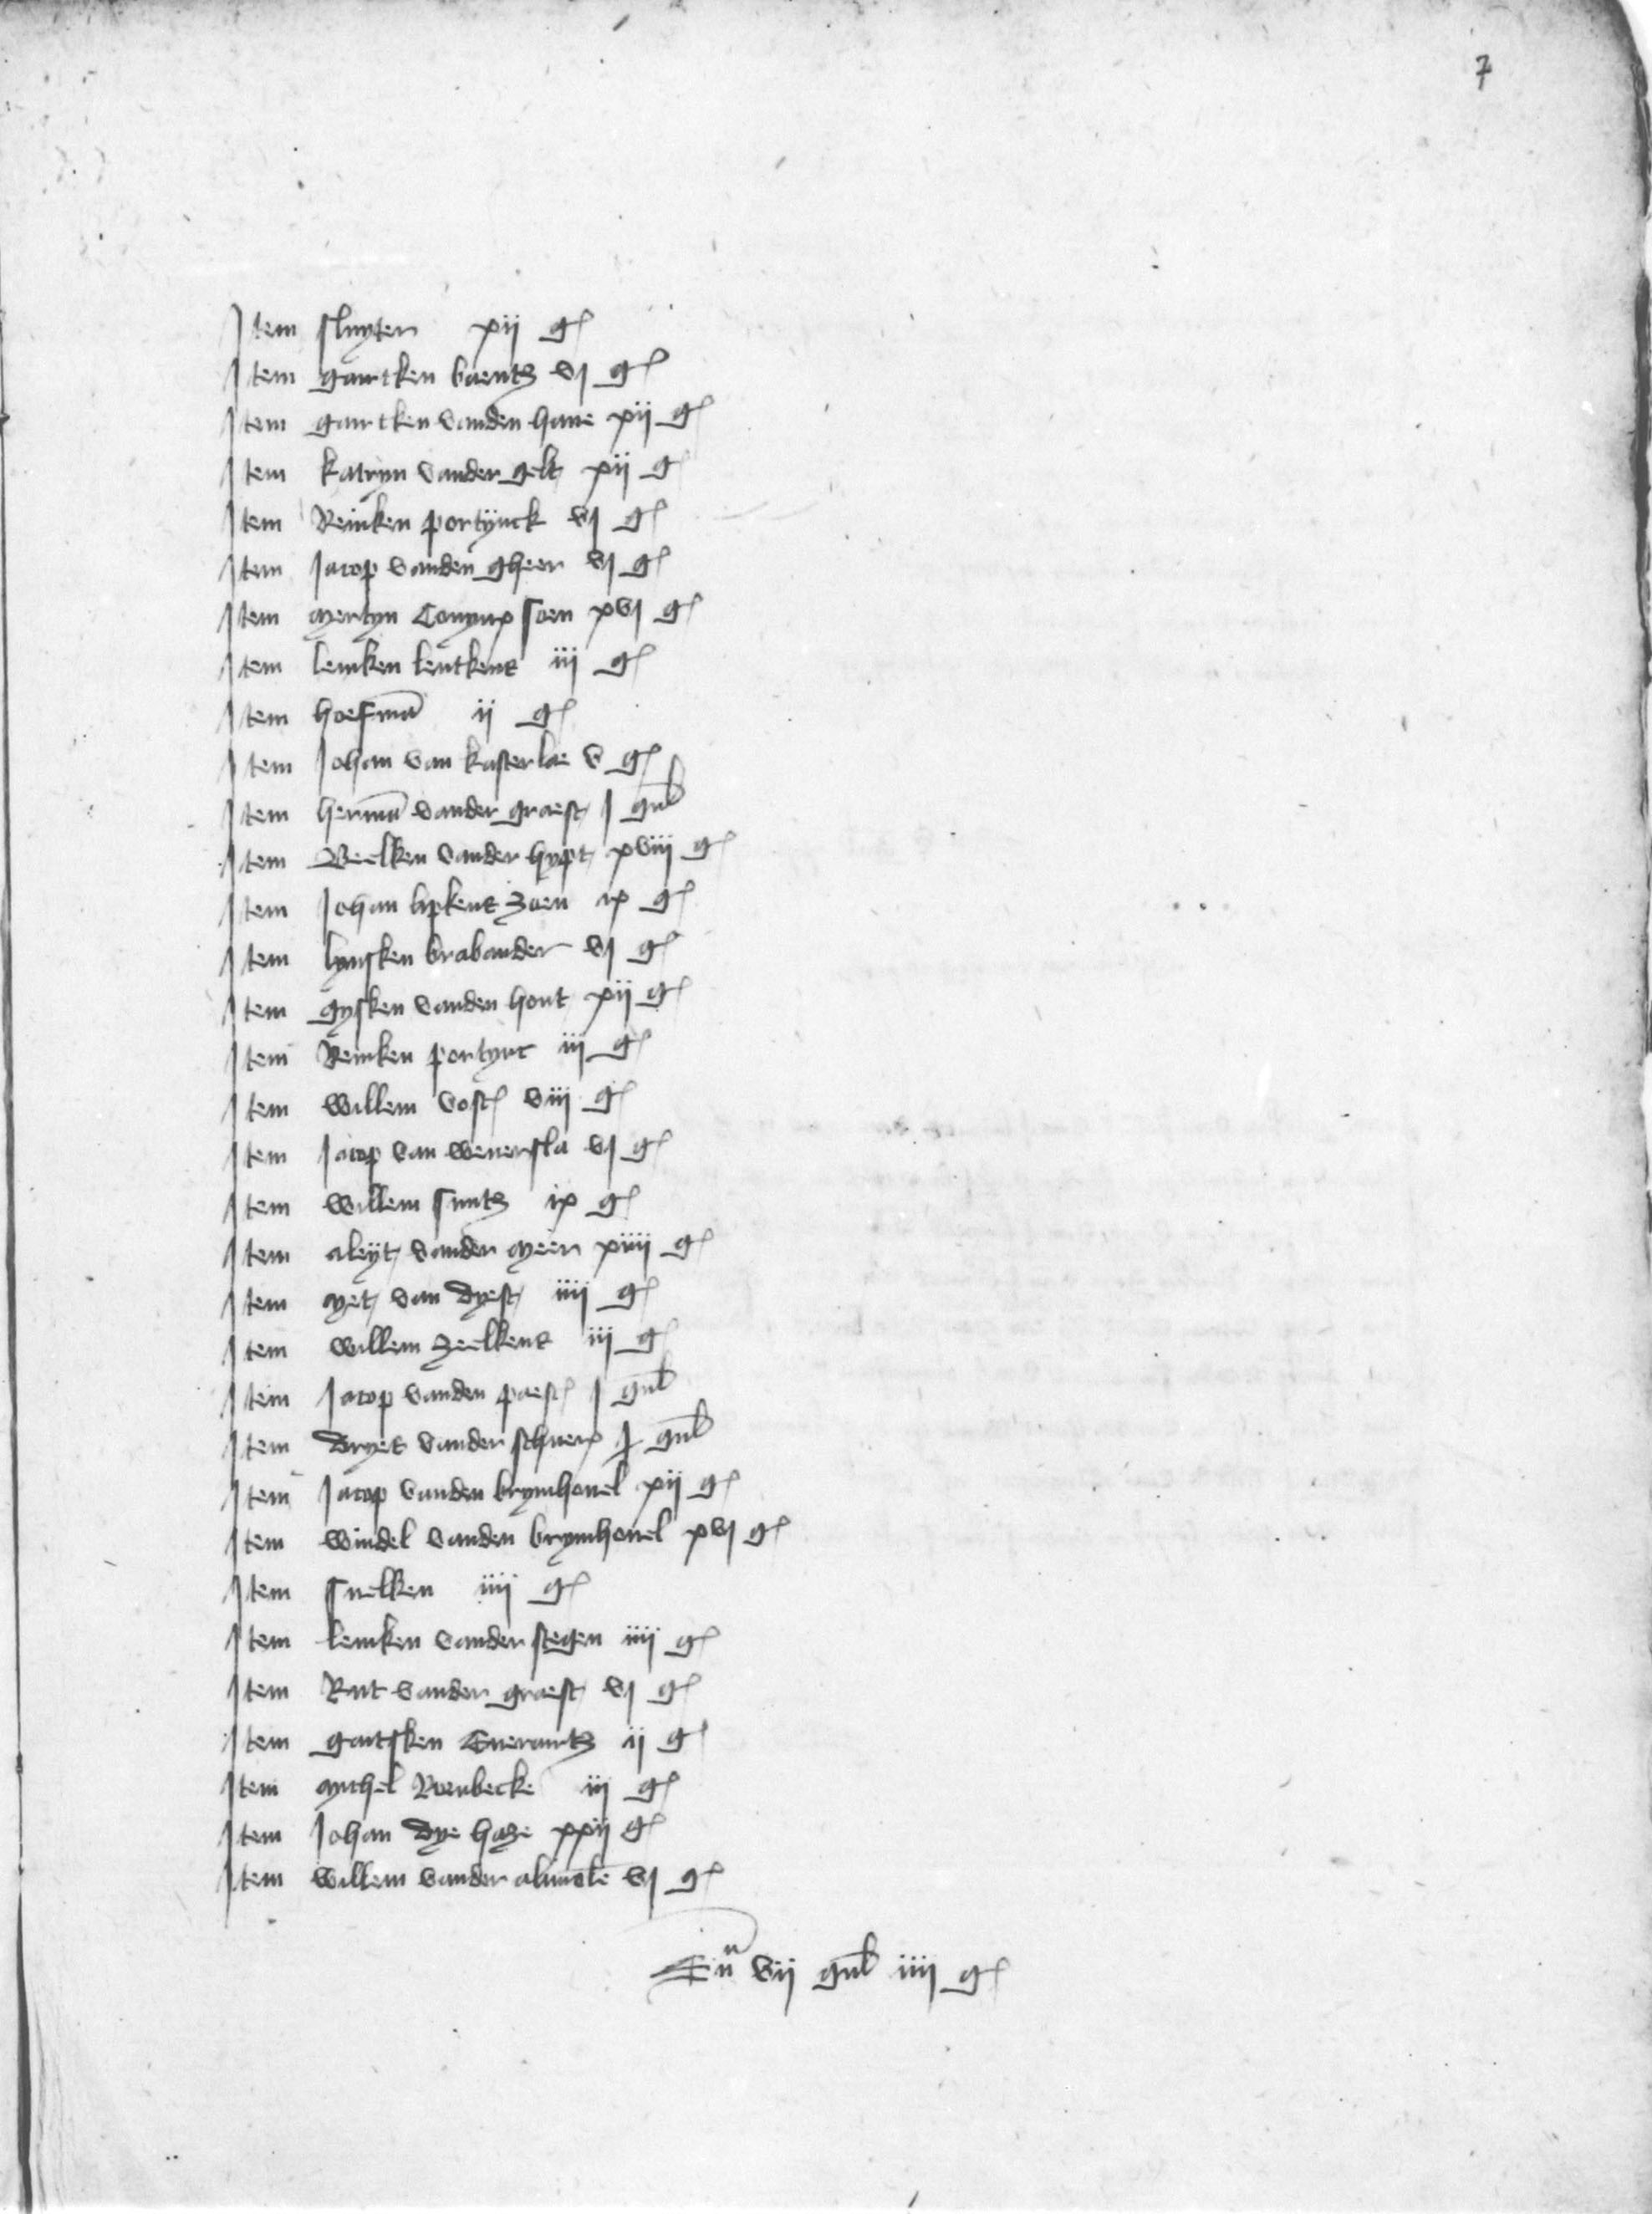 7
Item sluyter xij g
Item gaertken baentz vj g
Item gaertken vanden have xij g
Item katryn vander gelt xij g
Item Reinken portijnck vj g
Item Jacop vanden gheer vj g
Item mertyn Conynx soen xvj g
Item lemken lentkens iij g
Item hoefma ij g
Item Johan van kasterlae v g
Item herma vander graest j gul
Item Beelken vander hypt xviij g
Item Johan lipkens zoen ix g
Item lynsken brabander vj g
Item gysken vanden hout xij g
Item Reinken portync iij g
Item willem vost viij g
Item Jacop van weuersla vj g
Item willem smitz ix g
Item aleijt vander meer xiiij g
Item met van dyest iiij g
Item willem zeelkens iij g
Item Jacop vanden paest j gul
Item dryes vander schuer j gul
Item Jacop vanden brymhouel xij g
Item windel vanden brymhouel xvj g
Item snelken iiij g
Item lemken vander stegen iiij g
Item Rut vander graest vj g
Item gaetsken Euerartz ij g
Item mychel Roenbecke iij g
Item Johan dye haze xxij g
Item willem vander vj g
vij gul iiij g